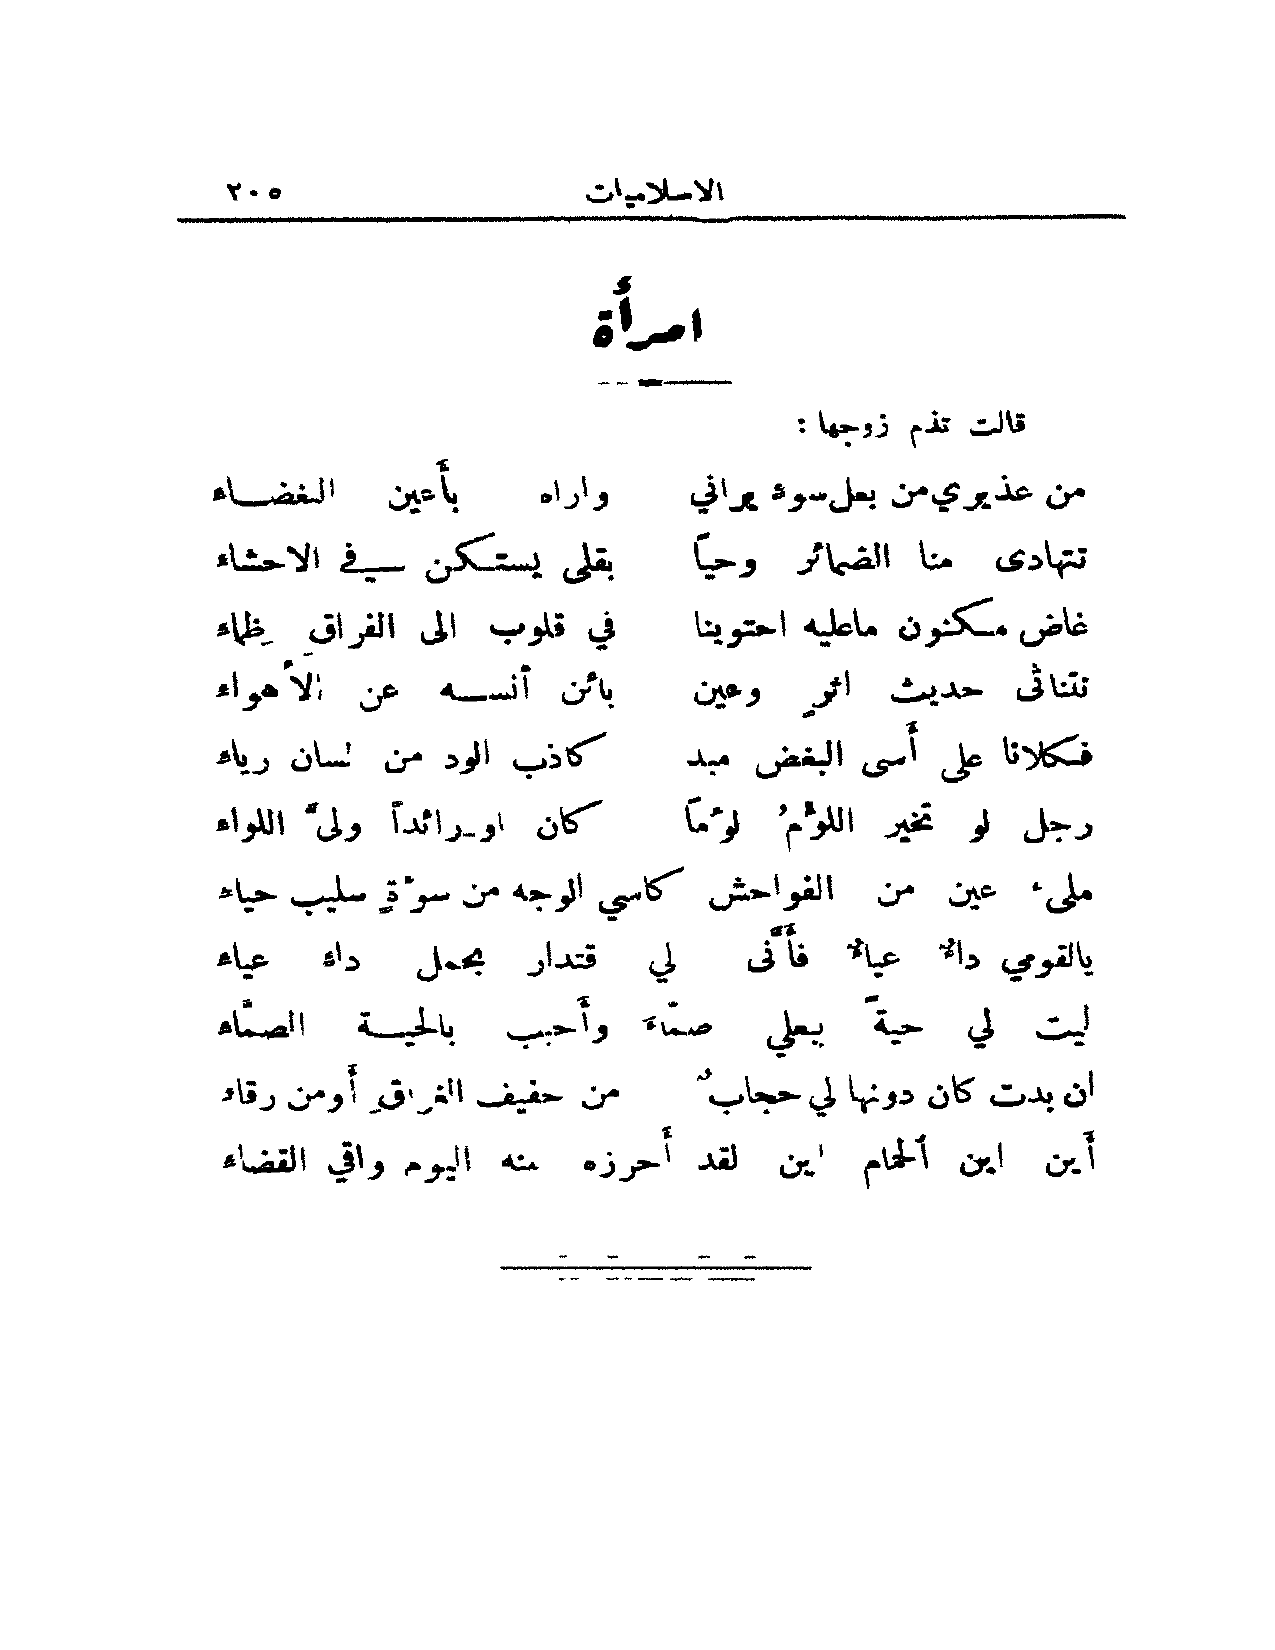 الاسلاميات ٢٠٥
امرأة
قالت تذم زوجها :
من عذيري من بعل سوء يراني واراه بأعين البغضاء
تتهادى منا الضمائر وحياً بقلى يستكن في الاحشاء
غاض مكنون ماعليه احتوينا في قلوب الى الفراقِ ظِماء
نتنائى حديث اثرٍ وعين بائن أُنسه عن الأَهواء
فكلانا على أَسى البغض مبد كاذب الود من لسان رياء
رجل لو تخير اللؤمُ لؤماً كان او رائداً وليَّ اللواء
مليء عين من الفواحش كاسي الوجه من سوءةٍ سليب حياء
يالقومي داءٌ عياءٌ فأَنَّى لي قتدار بحمل داء عياء
ليت لي حيةً ببعلي صمّاءَ وأَحبب بالحية الصمَّاء
ان بدت كان دونها لي حجابٌ من حفيف الغراقِ أَومن رقاء
أَين اين ألحمام اين لقد أَحرزه منه اليوم واقي القضاء